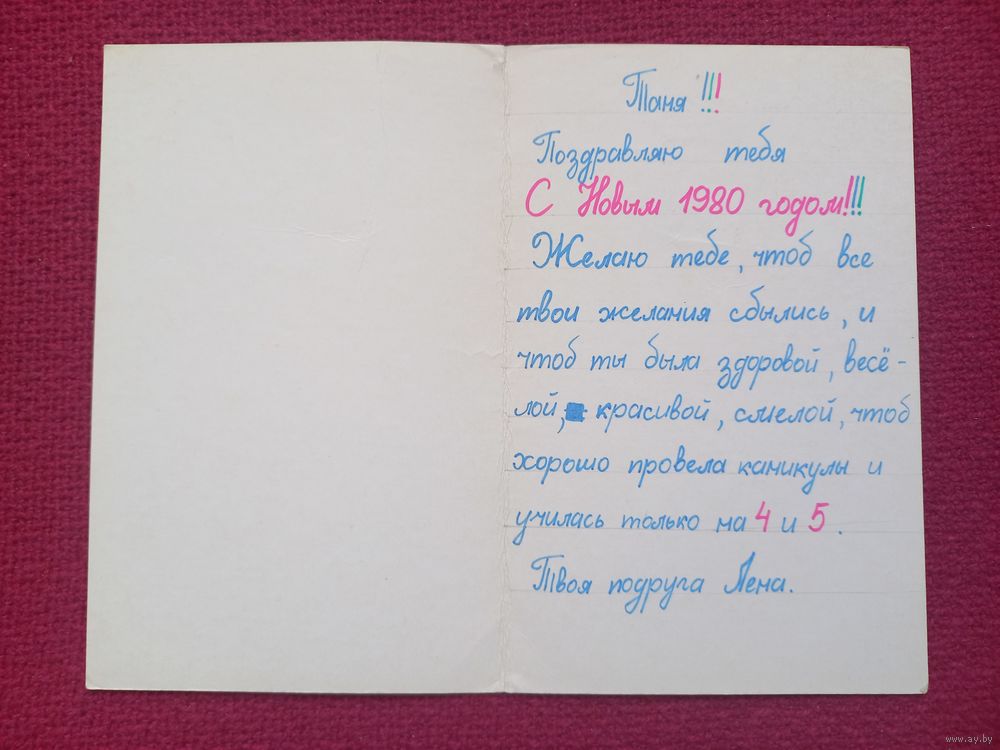 Таня!!!
Поздравляю тебя
С Новым 1980 годом!!!
Желаю тебе, чтоб все
твои желания сбылись, и
чтоб ты была здоровой, весё-
лой, красивой, смелой, чтоб
хорошо провела каникулы и
училась только на 4 и 5.
Твоя подруга Лена.
www.ay.by